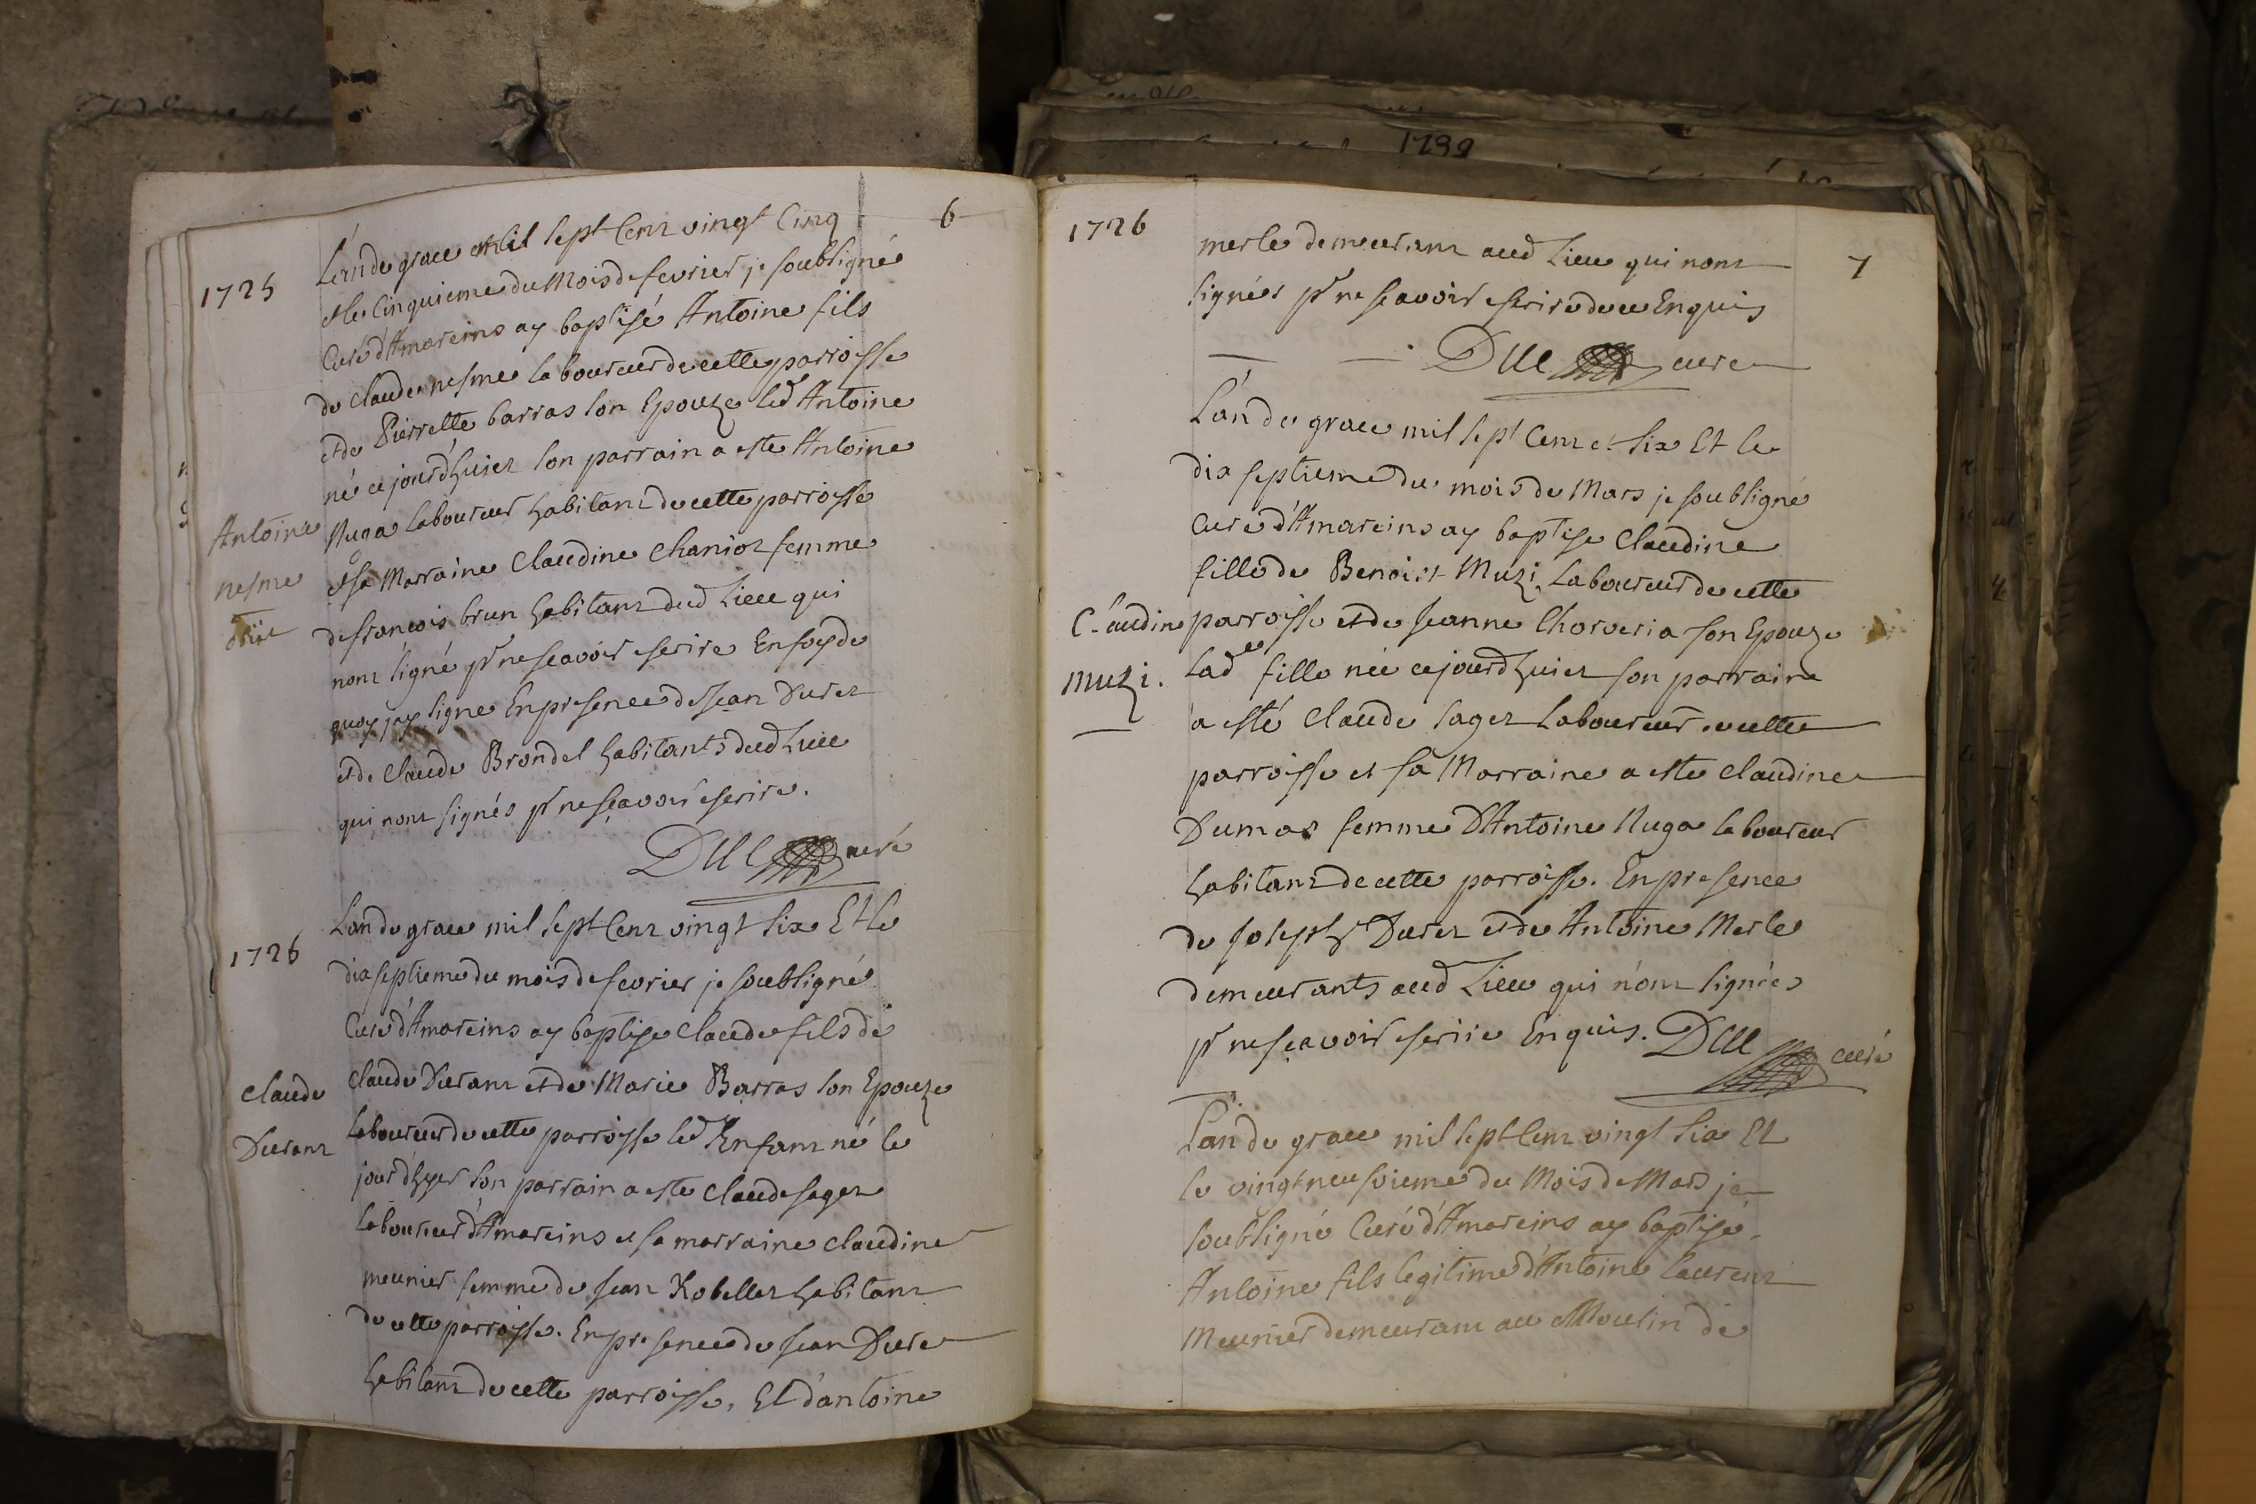 6
1725
L'an de grace Mil sept cent vingt cinq
et le cinquieme du Mois de fevrier je soubsigné
Curé d'Amareins ay baptisé Antoine fils
de Claude nesme laboureur de cette parroisse
et de Pierrette barras son Epouze led Antoine
né ce jourd'huier son parrain a esté Antoine
Nuga laboureur habitant de cette parroisse
et sa Marraine Claudine Chaniot femme
de francois brun habitant dud Lieu qui
nont signé pr ne scavoir escrire En foy de
quoy jay signe En presence de Jean Duret
et de Claude Brondel habitants dud Lieu
qui nont signés pr ne sçavoir escrire.
Antoine
nesme
Due curé
1726
Lan de grace mil sept cent vingt six Et le
dix septieme du mois de fevrier je soubsigné
Curé d'Amareins ay baptise Claude fils de
Claude Durant et de Marie Barras son Epouze
laboureur de cette parroisse led Enfant né le
jour d'hyer son parrain a esté Claude sager
laboureur d'Amareins et sa marraine Claudine
meunier femme de Jean Robellet habitant
de cette parroisse. En presence de Jean Dure
habitant de cette parroisse, Et d'antoine
Claude
Durant
1739
1726
7
merle demeurant aud Lieu qui nont
signés pr ne scavoir escrire de ce Enquis
Due cure
L'an de grace mil sept cent et six Et le
dix septieme du mois de Mars je soubsigné
Curé d'Amareins ay baptise Claudine
fille de Benoist Muzi Laboureur de cette
parroisse et de Jeanne Charveria son Epouze
lade fille née ce jourd'huier son parrain
a esté Claude sager laboureur de cette
parroisse et sa Marraine a esté Claudine
Dumas femme D'Antoine Nuga laboureur
habitant de cette parroisse. En presence
de Joseph Duret et de Antoine Merle
demeurants aud Lieu qui n'ont signées
pr ne sçavoir escrire Enquis. Due curé
Claudine
muzi.
L'an de grace mil sept cent vingt six Et
le vingt neufvieme du Mois de Mars je
soubsigné Curé d'Amareins ay baptisé
Antoine fils legitime d'Antoine laurent
Meunier demeurant au Moulin de